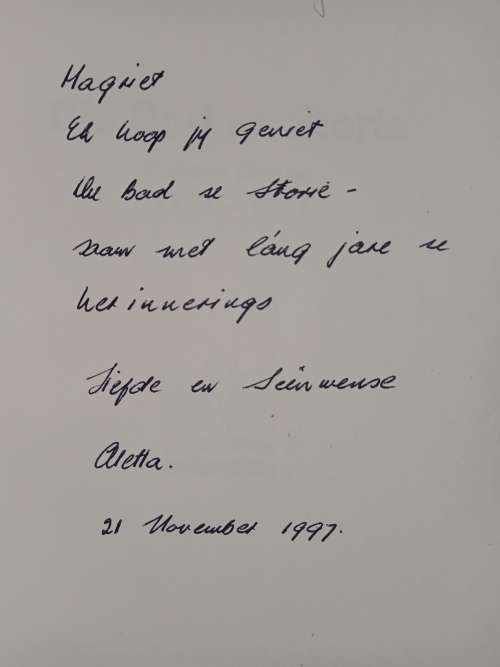 Magriet
Ek hoop jy geniet
Die Bad se Storie -
saam met láng jare se
herinnerings
Liefde en Seënwense
Aletta.
21 November 1997.